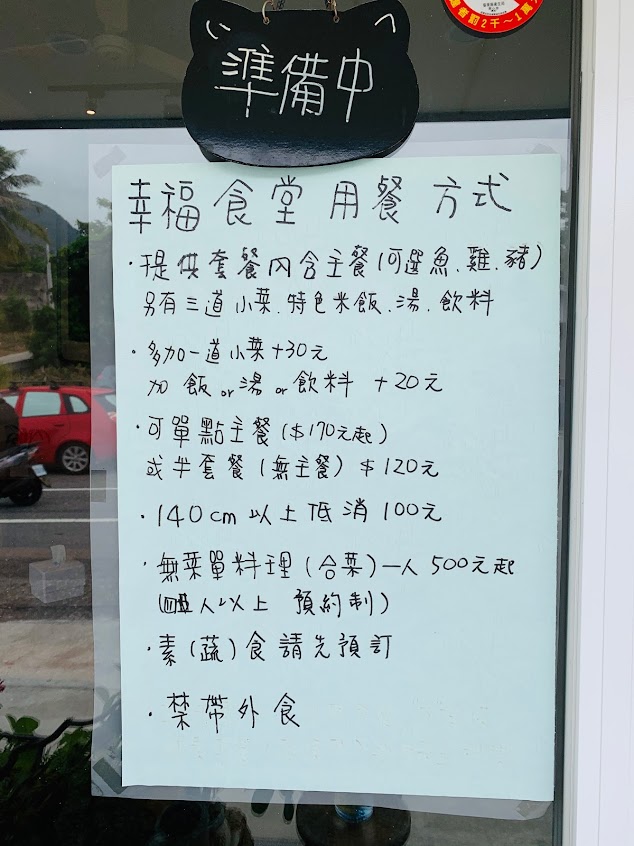 罰2千～1萬
準備中
幸福食堂用餐方式
·提供套餐內含主餐(可選魚、雞、豬)
另有三道小菜、特色米飯、湯、飲料
·多加一道小菜+30元
加 飯or湯or飲料 +20元
·可單點主餐($170元起)
或半套餐(無主餐)$120元
·140cm以上低消100元
·無菜單料理(合菜)一人500元起
(人以上 預約制)
·素(蔬)食請先預訂
·禁帶外食